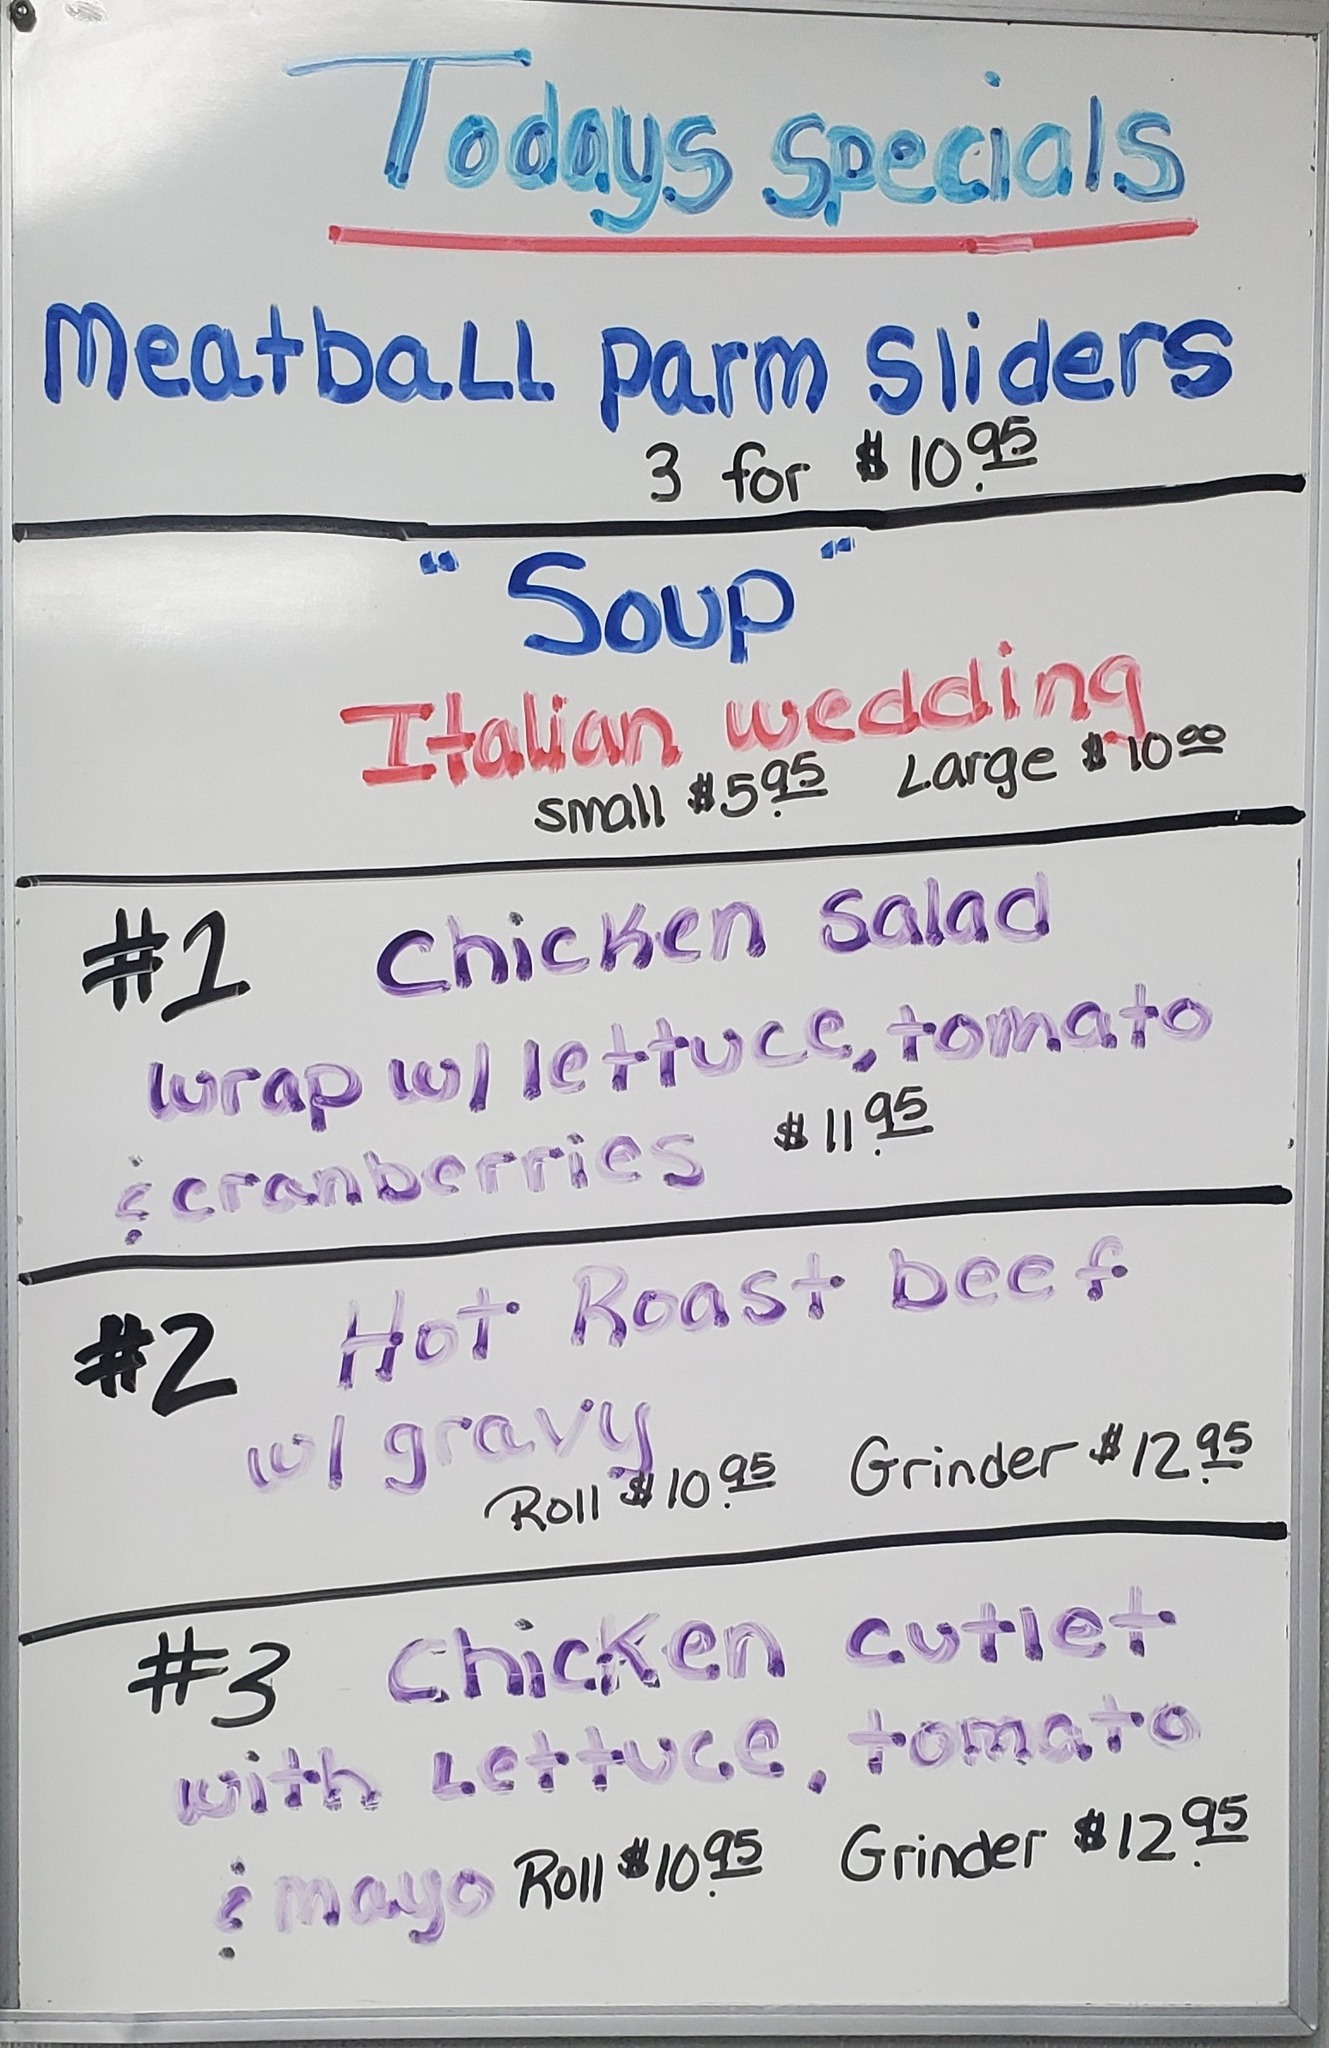 Todays specials
Meatball parm sliders
3 for $10.95
"Soup"
Italian wedding
small $5.95 Large $10.00
#1 Chicken salad
wrap w/ lettuce, tomato
& cranberries $11.95
#2 Hot Roast beef
w/ gravy
Roll $10.95 Grinder $12.95
#3 Chicken cutlet
with Lettuce, tomato
& mayo Roll $10.95 Grinder $12.95